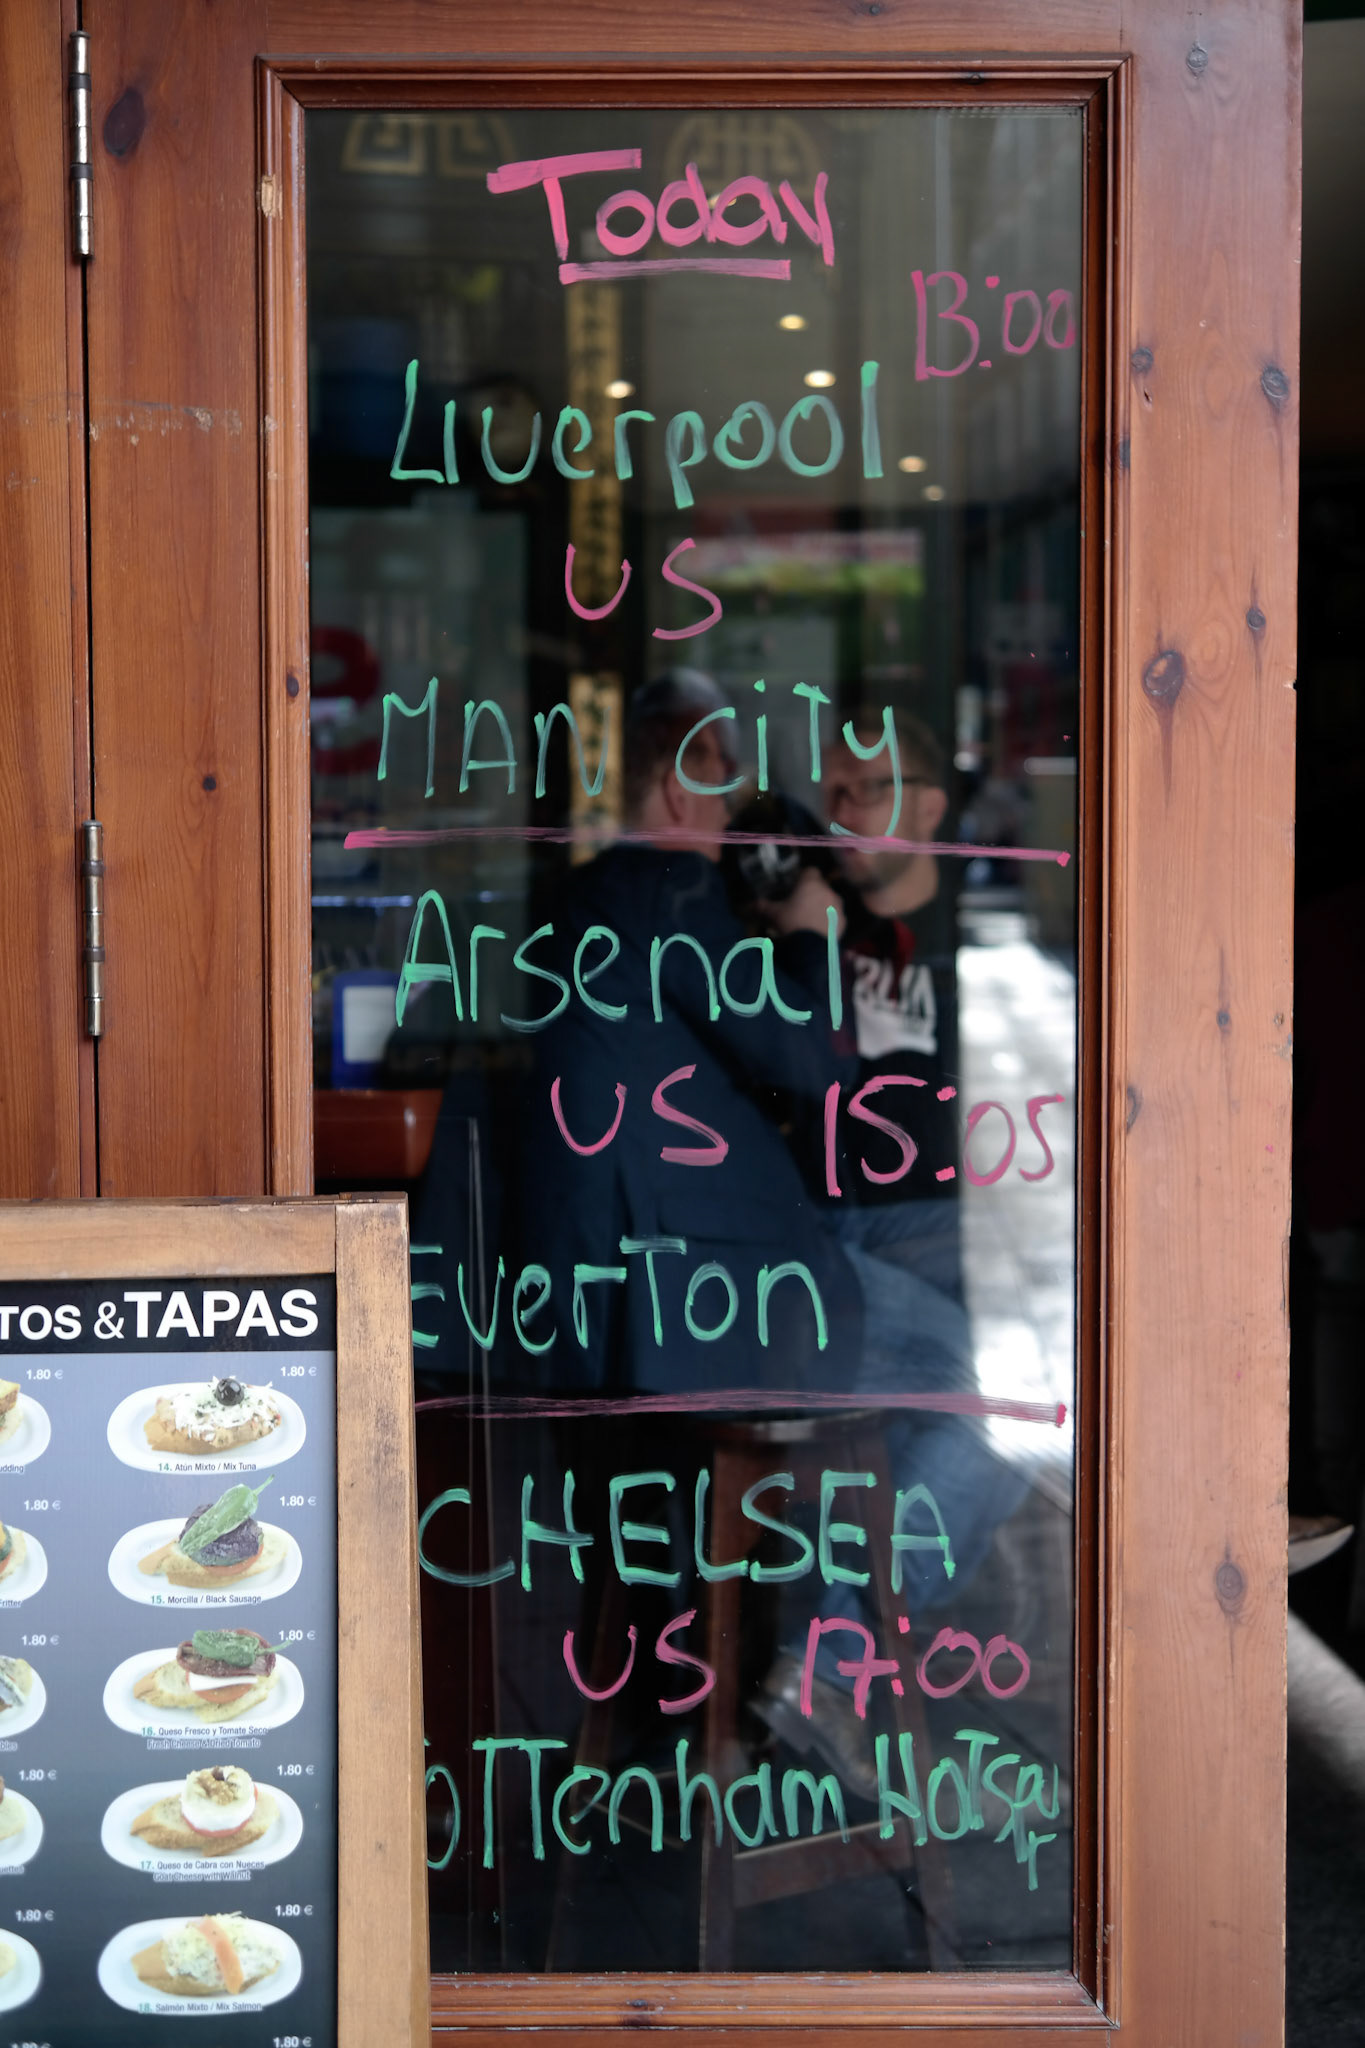 Today
13:00
Liverpool
US
MAN CiTy
Arsenal
US 15:05
EverTon
CHELSEA
US 17:00
oTTenham HoTspur
TOS & TAPAS
1.80 €
1.80 €
udding
14. Atún Mixto / Mix Tuna
1.80 €
1.80 €
Fritter
15. Morcilla / Black Sausage
1.80 €
1.80 €
bles
16. Queso Fresco y Tomate Seco
Fresh Cheese & Dried Tomato
1.80 €
1.80 €
17. Queso de Cabra con Nueces
Goat Cheese with Wallnut
1.80 €
1.80 €
18. Salmón Mixto / Mix Salmon
1.80 €